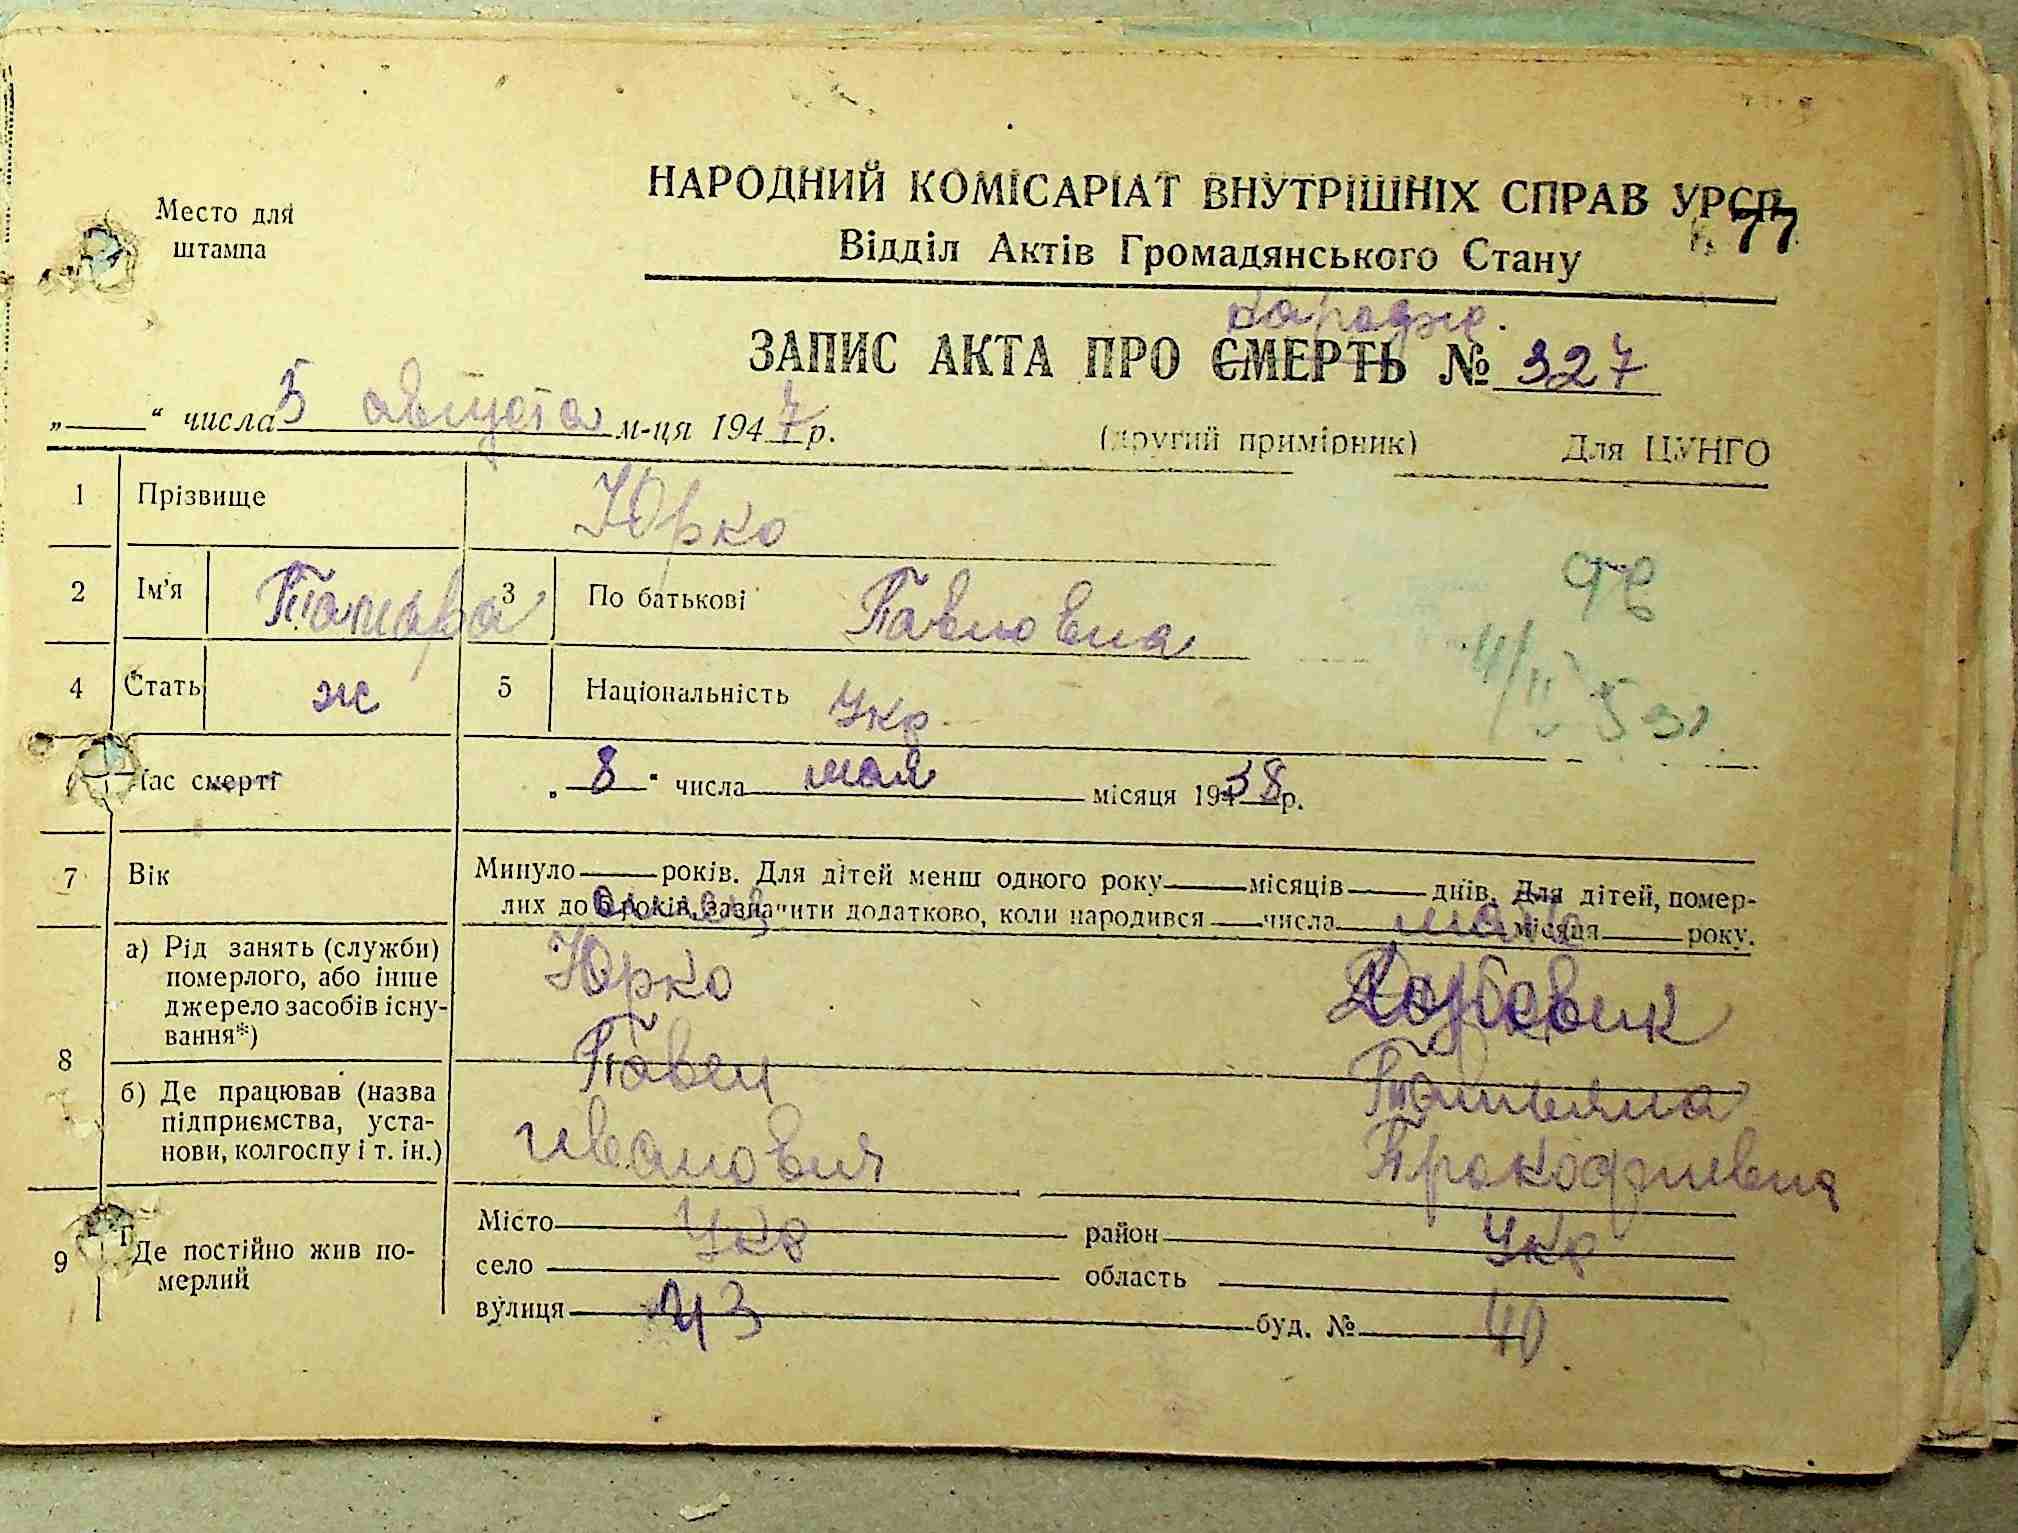 НАРОДНИЙ КОМІСАРІАТ ВНУТРІШНІХ СПРАВ УРСР
77
Место для
штампа
Відділ Актів Громадянського Стану
ЗАПИС АКТА ПРО СМЕРТЬ № 327
„ “ числа 5 августа м-ця 1947 р.
(другий примірник) Для ЦУНГО
1 Прізвище Юрко
2 Ім’я Тамара 3 По батькові Павловна
4 Стать ж 5 Національність Укр
11/II 53г.
Час смерті „ 8 “ числа мая місяця 1938 р.
7 Вік Минуло років. Для дітей менш одного року місяців днів. Для дітей, помер-
лих до 5 років, зазначити додатково, коли народився числа місяця року.
мать
8 а) Рід занять (служби)
померлого, або інше
джерело засобів існу-
вання*)
Юрко
б) Де працював (назва
підприємства, уста-
нови, колгоспу і т. ін.)
Павел Татьяна
Иванович Прокофиевна
9 Де постійно жив по-
мерлий
Місто Укр район Укр
село область
вулиця 43 буд. № 40